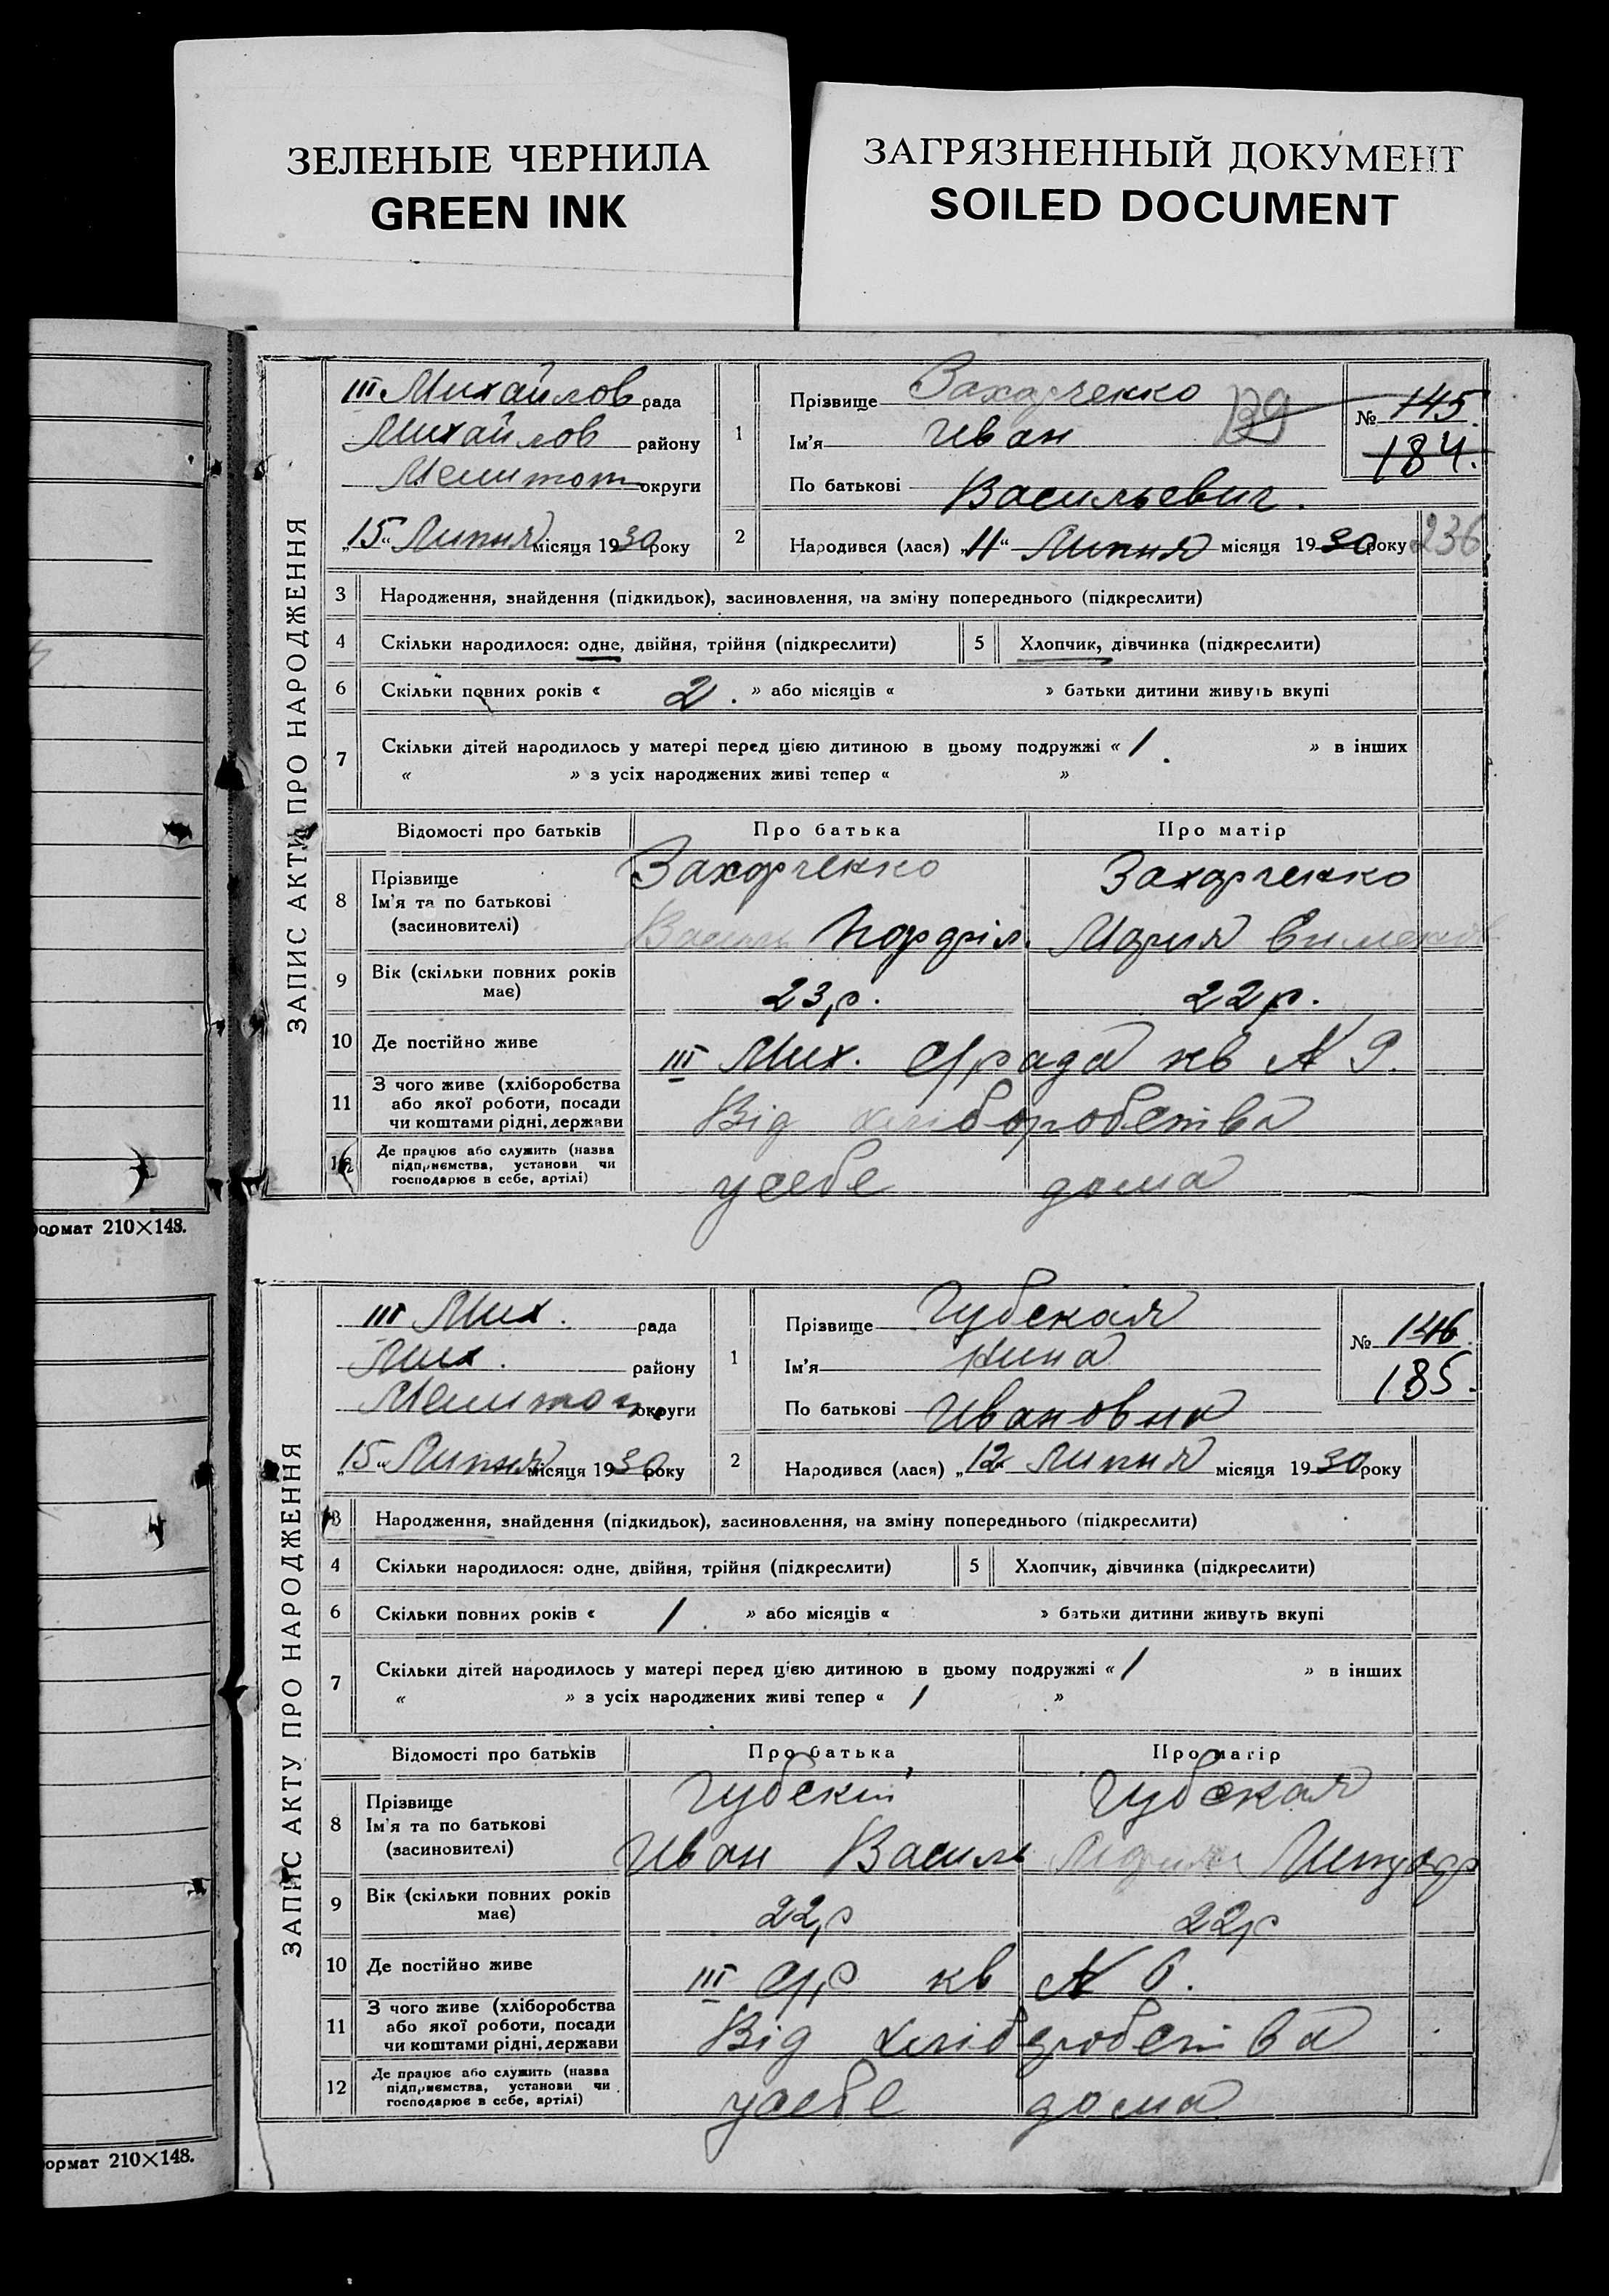 ЗЕЛЕНЫЕ ЧЕРНИЛА
GREEN INK
ЗАГРЯЗНЕННЫЙ ДОКУМЕНТ
SOILED DOCUMENT
ЗАПИС АКТИ ПРО НАРОДЖЕННЯ
III Михайлов рада
Михайлов району
Мелитоп округи
„15“ Липня місяця 1930 року
1
Прізвище Захарченко
Ім'я Иван
По батькові Васильевич.
№ 145
184.
2
Народився (лася) „11“ Липня місяця 1930 року
236
3 Народження, знайдення (підкидьок), засиновлення, на зміну попереднього (підкреслити)
4 Скільки народилося: одне, двійня, трійня (підкреслити) 5 Хлопчик, дівчинка (підкреслити)
6 Скільки повних років « 2. » або місяців « » батьки дитини живуть вкупі
7 Скільки дітей народилось у матері перед цією дитиною в цьому подружжі « 1. » в інших
« » з усіх народжених живі тепер « »
Відомості про батьків Про батька Про матір
8 Прізвище
Ім'я та по батькові
(засновителі)
Захарченко Захарченко
Василь Мария
9 Вік (скільки повних років
має)
23 р. 22 р.
10 Де постійно живе III Мих. с/рада кв № 9.
11 З чого живе (хліборобства
або якої роботи, посади
чи коштами рідні, держави
Від хліборобства
12 Де працює або служить (назва
підприємства, установи чи
господарює в себе, артілі)
усебе дома
формат 210×148.
ЗАПИС АКТУ ПРО НАРОДЖЕННЯ
III Мих. рада
Мих. району
Мелитоп округи
„15“ Липня місяця 1930 року
1
Прізвище Губская
Ім'я Нина
По батькові Ивановна
№ 146.
185.
2
Народився (лася) „12“ Липня місяця 1930 року
3 Народження, знайдення (підкидьок), засиновлення, на зміну попереднього (підкреслити)
4 Скільки народилося: одне, двійня, трійня (підкреслити) 5 Хлопчик, дівчинка (підкреслити)
6 Скільки повних років « 1. » або місяців « » батьки дитини живуть вкупі
7 Скільки дітей народилось у матері перед цією дитиною в цьому подружжі « 1 » в інших
« » з усіх народжених живі тепер « 1 »
Відомості про батьків Про батька Про матір
8 Прізвище
Ім'я та по батькові
(засиновителі)
Губский Губская
Иван Василь
9 Вік (скільки повних років
має)
22 р 22 р
10 Де постійно живе III с/р кв № 6.
11 З чого живе (хліборобства
або якої роботи, посади
чи коштами рідні, держави
Від хліборобства
12 Де працює або служить (назва
підприємства, установи чи
господарює в себе, артілі)
усебе дома
формат 210×148.